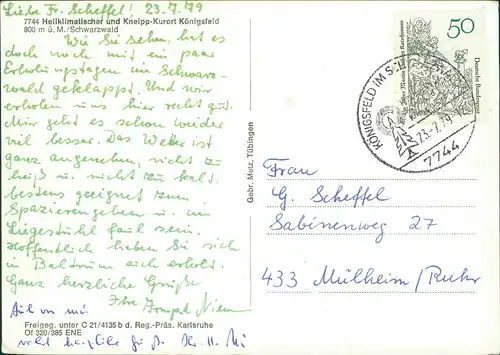 Liebe Fr. Scheffel! 23.7.79
7744 Heilklimatischer und Kneipp-Kurort Königsfeld
800 m ü. M./Schwarzwald
Wie Sie sehen, hat es
doch noch mit ein paar
Erholungstagen im Schwarz-
wald geklappt. Und wir
erholen uns hier recht gut.
Mir geht es schon wieder
viel besser. Das Wetter ist
ganz angenehm, nicht zu
heiß u. nicht zu kalt,
bestens geeignet zum
Spazierengehen u. im
Liegestühl faul sein.
Hoffentlich haben Sie sich
in Baltrum auch erholt.
Ganz herzliche Grüße
Ihre Irmgard
Auch von mir
recht herzliche
Freigeg. unter C 21/4135 b d. Reg.-Präs. Karlsruhe
Of 320/385 ENE
Gebr. Metz, Tübingen
50
Deutsche Bundespost
KÖNIGSFELD IM SCHWARZWALD
23.-7.79
7744
Frau
G. Scheffel
Sabinenweg 27
433 Mülheim/Ruhr